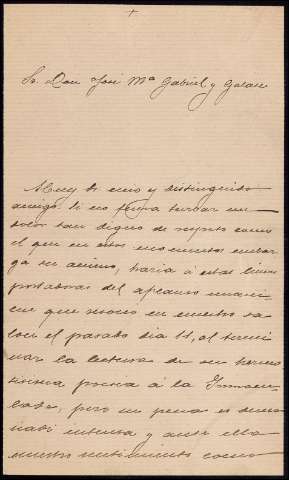 Sr. Don José Mª Gabriel y Galán
Muy Sr. mio y distinguido
amigo: Si no fuera turbar un
dolor tan digno de respeto como
el que en estos momentos embar
ga su ánimo, haria a estas líneas
portadoras del aplauso unáni
me que resonó en nuestro sa
lon el pasado dia 11, al termi
nar la lectura de su hermo
sísima poesia á la Inmacu
lada; pero su pena es dema
siado intensa y ante ella
nuestro sentimiento como